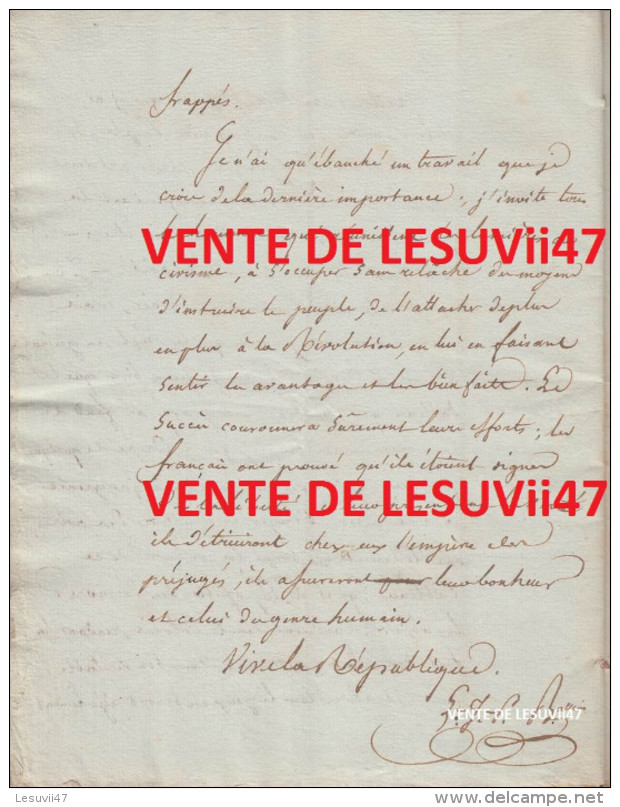 frappés.
Je n'ai qu'ébauché un travail que je
crois de la dernière importance ; j'invite tous
VENTE DE LESUVii47
civisme, à s'occuper sans relache des moyens
d'instruire le peuple, de l'attacher de plus
en plus à la Révolution, en lui en faisant
sentir les avantages et les bienfaits. Le
Succès couronnera sûrement leurs efforts ; les
français ont prouvé qu'ils étoient dignes
VENTE DE LESUVii47
ils détruiront chez eux l'empire des
préjugés ; ils assureront leur bonheur
et celui du genre humain.
Vive la République.
VENTE DE LESUVii47
Lesuvii47
www.delcampe.net